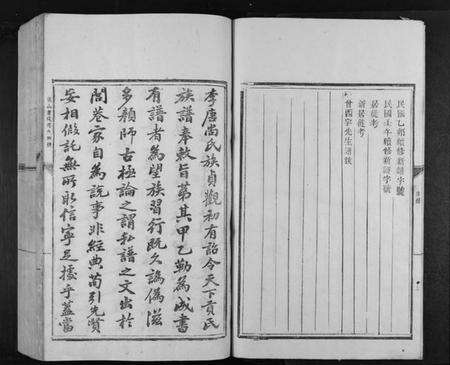 民國乙頼修新譜字號
民國壬午頼修新譜字號
居徙考
新居徙考
曾酉宇先生譜說
李唐尚氏族貞觀初有詔令天下貢氏
族譜奉敕旨第其甲乙勒為成書
有譜者為望族習行既久譌偽滋
多顏師古極論之謂私譜之文出於
閭巷家自為說事非經典苟引先賢
妄相假託無所取信寧足據乎蓋當